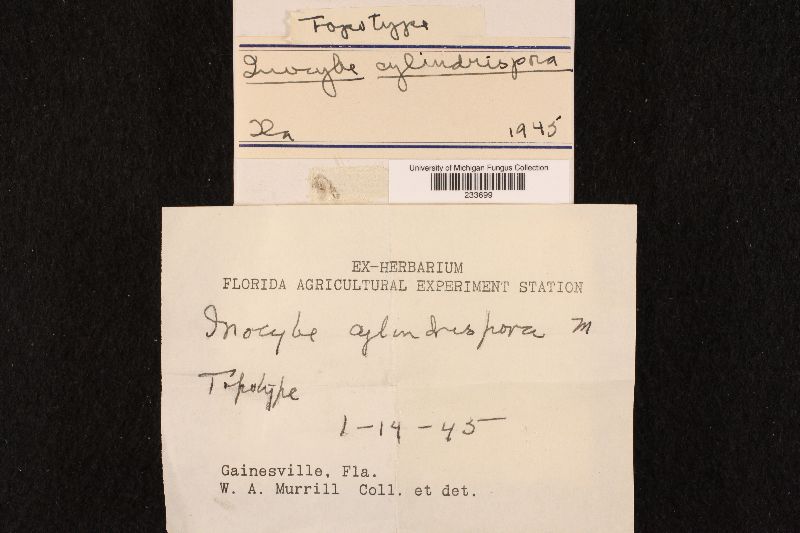 Topotype
Inocybe cylindrispora
Fla 1945
University of Michigan Fungus Collection
233699
EX-HERBARIUM
FLORIDA AGRICULTURAL EXPERIMENT STATION
Inocybe cylindrispora M
Topotype
1-14-45
Gainesville, Fla.
W. A. Murrill Coll. et det.